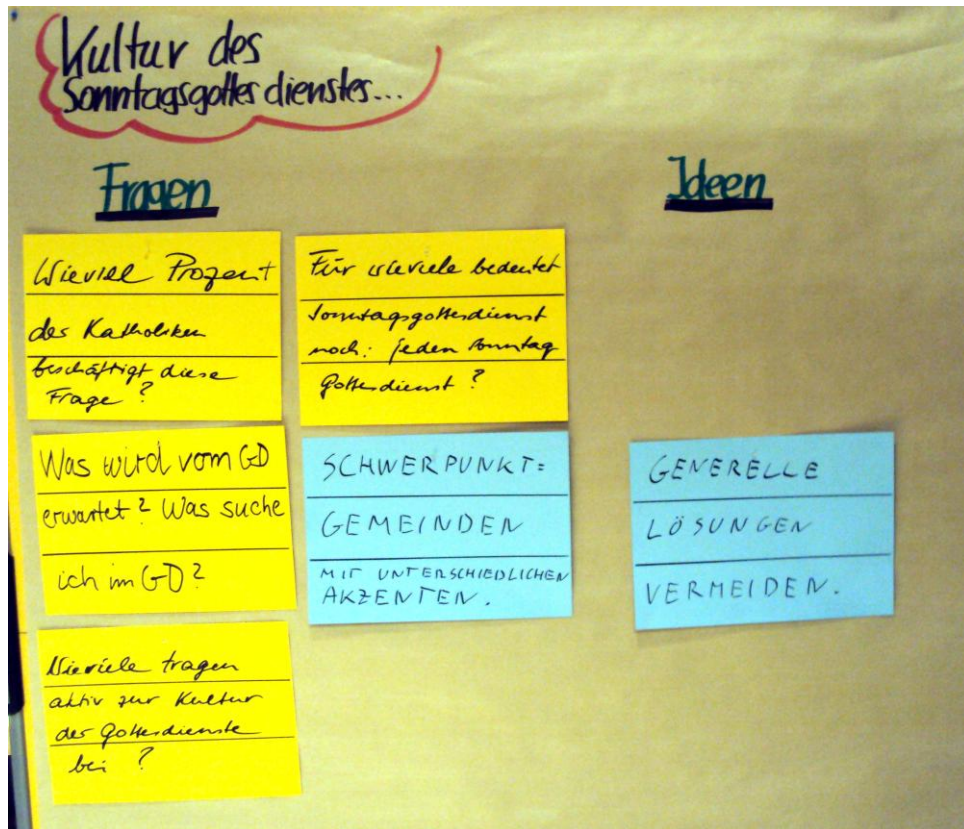 Kultur des
Sonntagsgottesdienstes...
Fragen
Ideen
Wieviel Prozent
der Katholiken
beschäftigt diese
Frage?
Für wieviele bedeutet
Sonntagsgottesdienst
noch: jeden Sonntag
Gottesdienst?
Was wird vom GD
erwartet? Was suche
ich im GD?
SCHWERPUNKT=
GEMEINDEN
MIT UNTERSCHIEDLICHEN
AKZENTEN.
GENERELLE
LÖSUNGEN
VERMEIDEN.
Wieviele tragen
aktiv zur Kultur
der Gottesdienste
bei?